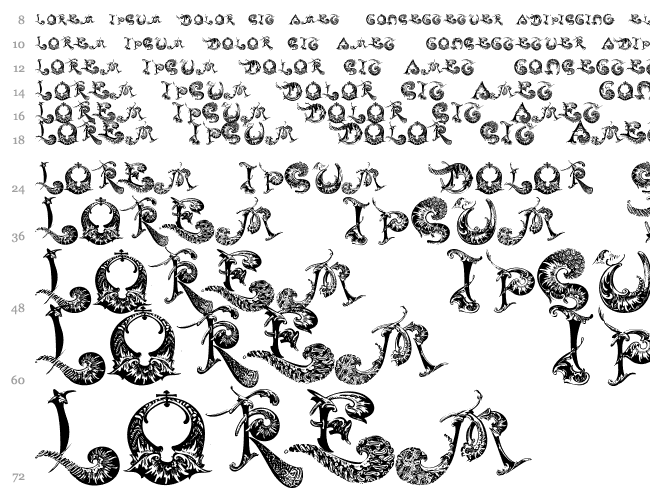 8 LOREM IPSUM DOLOR SIT AMET CONSECTETUER ADIPISCING EL
10 LOREM IPSUM DOLOR SIT AMET CONSECTETUER ADIP
12 LOREM IPSUM DOLOR SIT AMET CONSECTE
14 LOREM IPSUM DOLOR SIT AMET CON
16 LOREM IPSUM DOLOR SIT AMET
18 LOREM IPSUM DOLOR SIT AME
24 LOREM IPSUM DOLOR S
36 LOREM IPSUM
48 LOREM IPSU
60 LOREM IP
72 LOREM